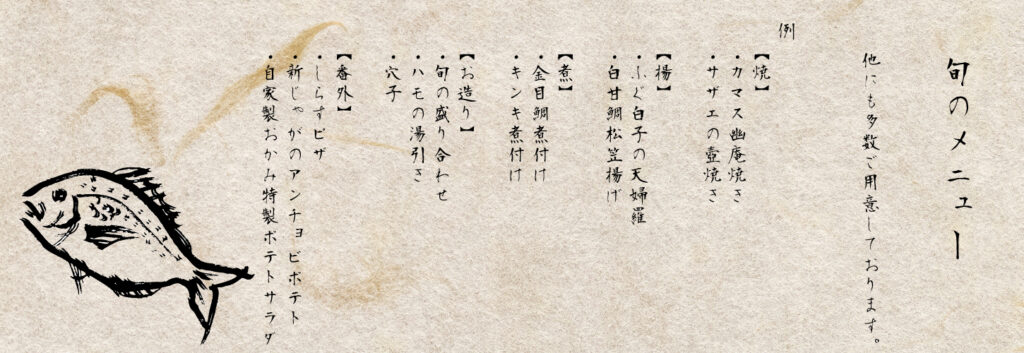 旬のメニュー
他にも多数ご用意しております。
例
【焼】
・カマス幽庵焼き
・サザエの壺焼き
【揚】
・ふぐ白子の天婦羅
・白甘鯛松笠揚げ
【煮】
・金目鯛煮付け
・キンキ煮付け
【お造り】
・旬の盛り合わせ
・ハモの湯引き
・穴子
【番外】
・しらすピザ
・新じゃがのアンチョビポテト
・自家製おかみ特製ポテトサラダ